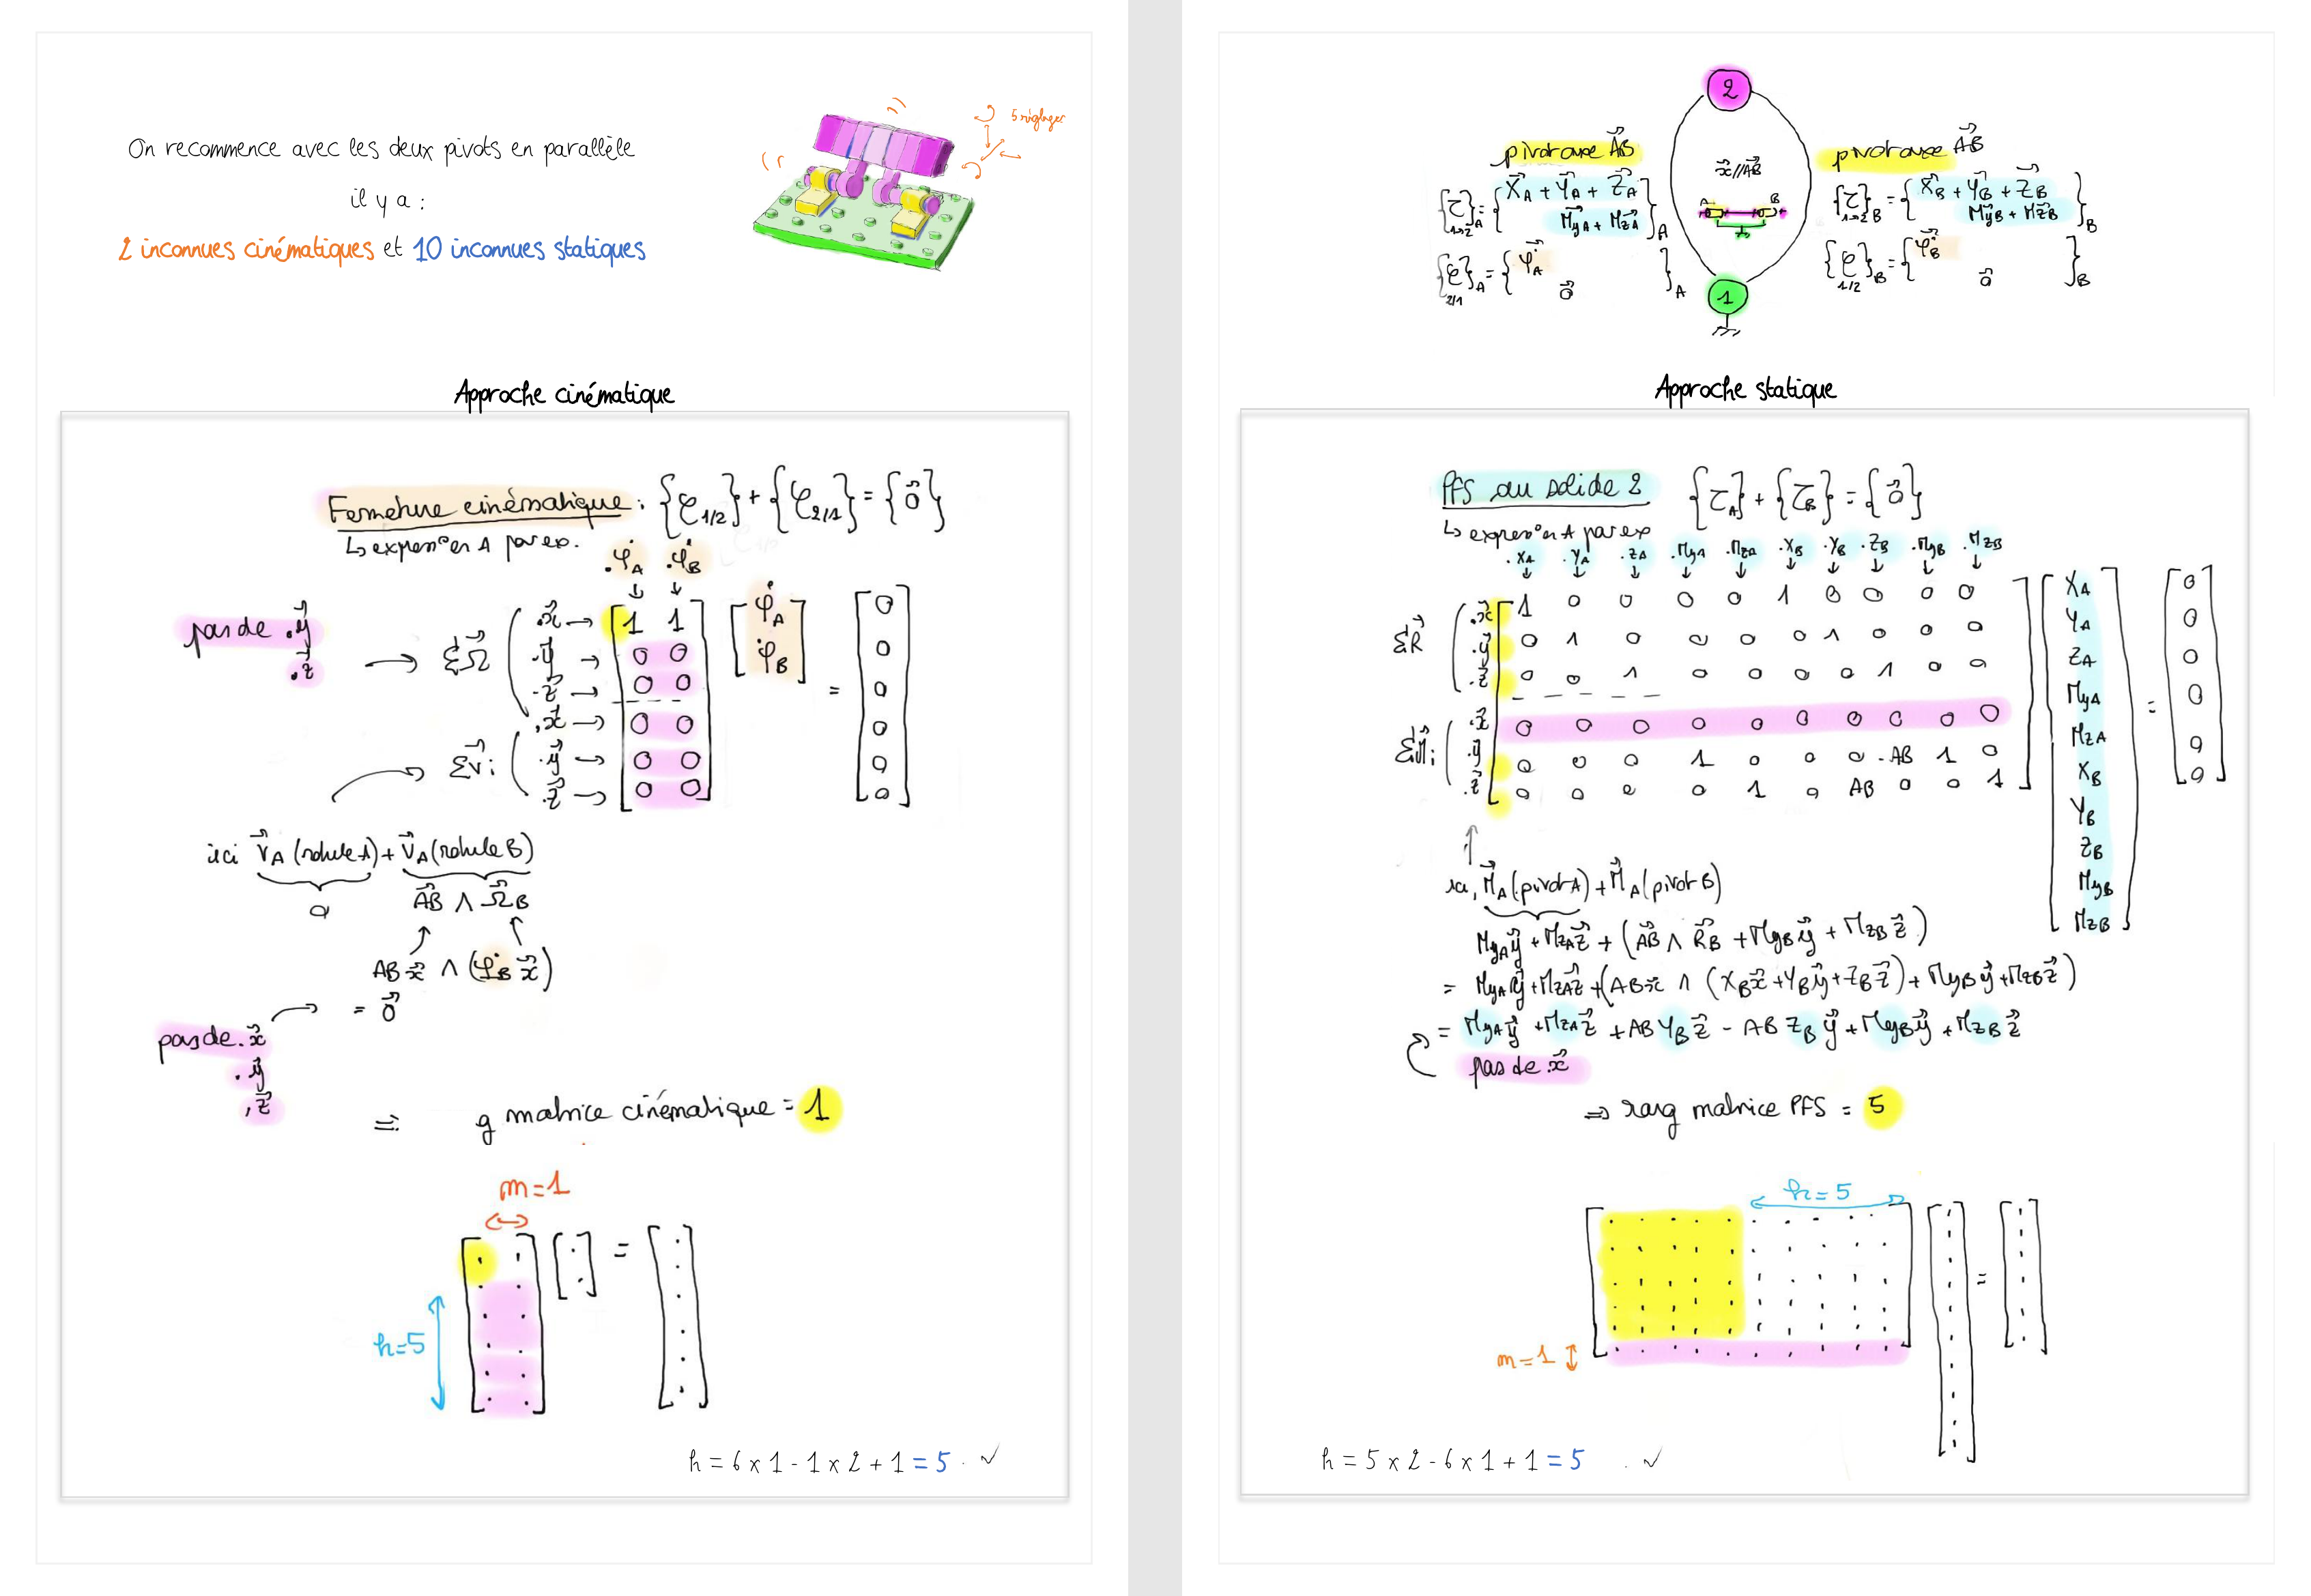 On recommence avec les deux pivots en parallèle
il y a :
2 inconnues cinématiques et 10 inconnues statiques
5 réglages
Approche cinématique
Fermeture cinématique : {𝒞1/2} + {𝒞2/1} = {0⃗}
↳ en A par ex.
.φ̇A .φ̇B
↓ ↓
pas de .y⃗
.z⃗
→ ΣΩ⃗
.x⃗ → 1 1
.y⃗ → 0 0
.z⃗ → 0 0
Σv⃗i
.x⃗ → 0 0
.y⃗ → 0 0
.z⃗ → 0 0
[φ̇A φ̇B] = [0 0 0 0 0 0]
ici v⃗A (rotule A) + v⃗A (rotule B)
0 AB⃗ ∧ Ω⃗B
AB x⃗ ∧ (φ̇B x⃗)
= 0⃗
pas de .x⃗
.y⃗
.z⃗
=: g matrice cinématique = 1
m=1
h=5
h = 6 x 1 - 1 x 2 + 1 = 5 . ✓
2
pivot axe AB⃗
x⃗//AB⃗
pivot axe AB⃗
{τ}1→2 A = {X⃗A + Y⃗A + Z⃗A
M⃗yA + M⃗zA}A
A B
{τ}1→2 B = {X⃗B + Y⃗B + Z⃗B
M⃗yB + M⃗zB}B
{𝒞}2/1 A = {φ̇⃗A
0⃗}A
{𝒞}1/2 B = {φ̇⃗B
0⃗}B
1
Approche statique
PFS au solide 2 {τA} + {τB} = {0⃗}
↳ en A par ex
.XA .YA .ZA .MyA .MzA .XB .YB .ZB .MyB .MzB
↓ ↓ ↓ ↓ ↓ ↓ ↓ ↓ ↓ ↓
ΣR⃗
.x⃗ 1 0 0 0 0 1 0 0 0 0
.y⃗ 0 1 0 0 0 0 1 0 0 0
.z⃗ 0 0 1 0 0 0 0 1 0 0
ΣM⃗i
.x⃗ 0 0 0 0 0 0 0 0 0 0
.y⃗ 0 0 0 1 0 0 0 -AB 1 0
.z⃗ 0 0 0 0 1 0 AB 0 0 1
[XA YA ZA MyA MzA XB YB ZB MyB MzB] = [0 0 0 0 0 0]
ici, M⃗A (pivot A) + M⃗A (pivot B)
MyA y⃗ + MzA z⃗ + (AB⃗ ∧ R⃗B + MyB y⃗ + MzB z⃗)
= MyA y⃗ + MzA z⃗ + (AB x⃗ ∧ (XB x⃗ + YB y⃗ + ZB z⃗) + MyB y⃗ + MzB z⃗)
= MyA y⃗ + MzA z⃗ + AB YB z⃗ - AB ZB y⃗ + MyB y⃗ + MzB z⃗
pas de .x⃗
⇒ rang matrice PFS = 5
h=5
m=1
h = 5 x 2 - 6 x 1 + 1 = 5 . ✓